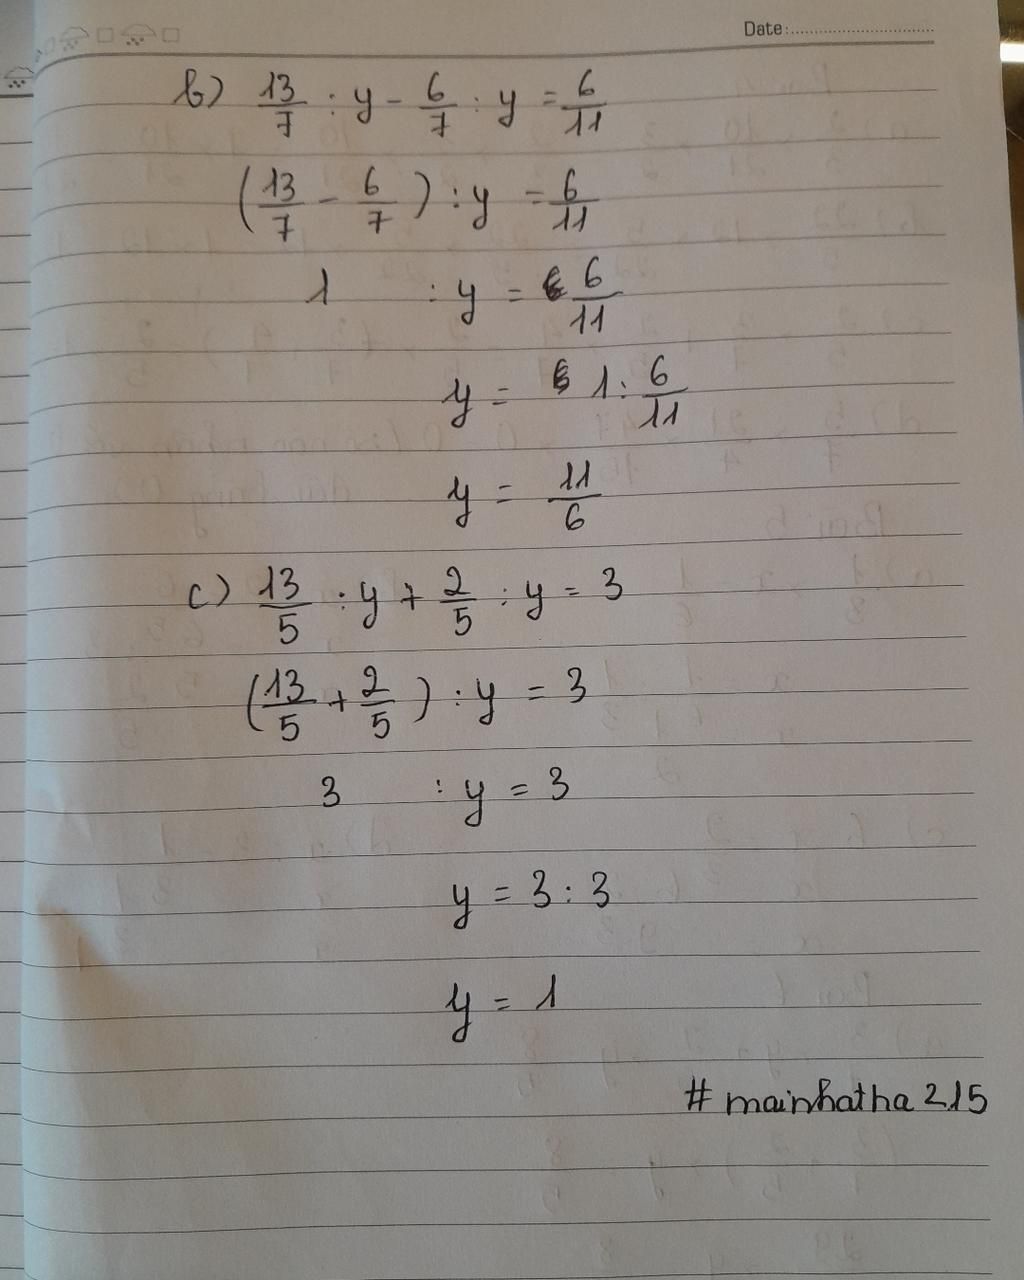 Date:
b) 13/7 : y - 6/7 : y = 6/11
(13/7 - 6/7) : y = 6/11
1 : y = 6/11
y = 1 : 6/11
y = 11/6
c) 13/5 : y + 2/5 : y = 3
(13/5 + 2/5) : y = 3
3 : y = 3
y = 3 : 3
y = 1
# mainhatha215